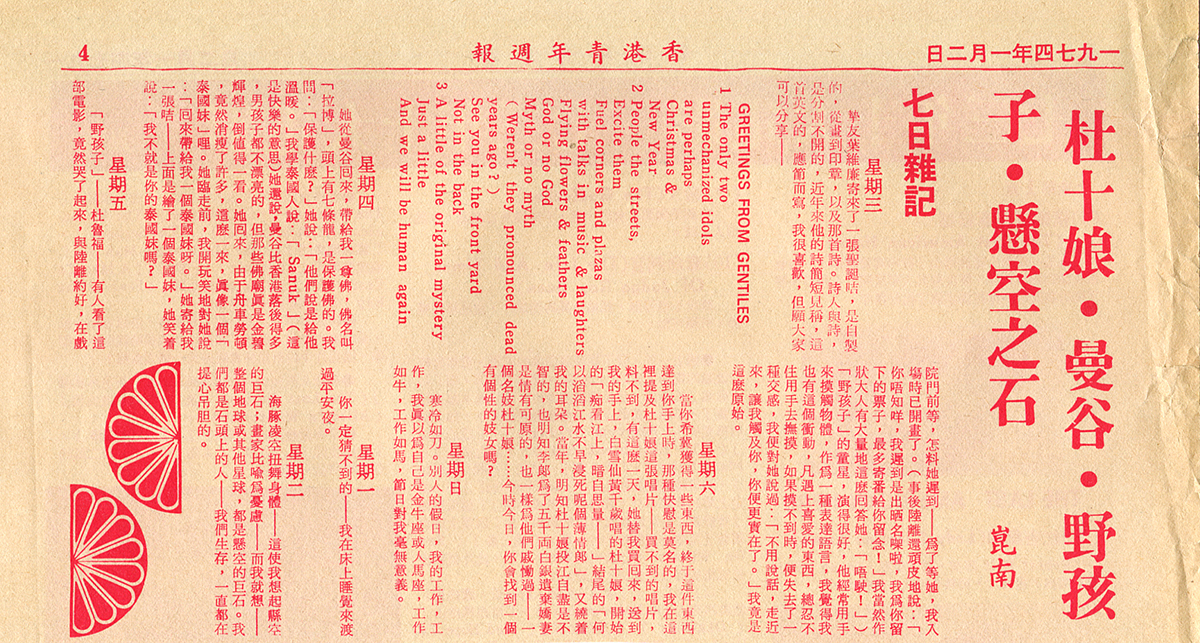 一九七四年一月二日
香港青年週報
4
杜十娘・曼谷・野孩
子・懸空之石
崑南
七日雜記
星期三
摯友葉維廉寄來了一張聖誕咭,是自製
的,從畫到印章,以及那首詩。詩人與詩,
是分割不開的,近年來他的詩簡短見稱,這
首英文的,應節而寫,我很喜歡,但願大家
可以分享——
GREETINGS FROM GENTILES
1 The only two
unmechanized idols
are perhaps
Christmas &
New Year
2 People the streets,
Excite them
Fuel corners and plazas
with talks in music & laughters
Flying flowers & feathers
God or no God
Myth or no myth
(Weren't they pronounced dead
years ago?)
See you in the front yard
Not in the back
3 A little of the original mystery
Just a little
And we will be human again
星期四
她從曼谷囘來,帶給我一尊佛,佛名叫
「拉博」,頭上有七條龍,是保護佛的。我
問:「保護什麽?」她說:「他們說是給他
溫暖。」我學泰國人說:「Sanuk」(這
是快樂的意思)她還說,曼谷比香港落後得多
,男孩子都不漂亮的,但那些佛廟眞是金碧
輝煌,倒値得一看。她囘來,由于舟車勞頓
,竟然消瘦了許多,這麽一來,眞像一個「
泰國妹」哩。她臨走前,我開玩笑地對她說
:「囘來帶給我一個泰國妹呀。」她寄給我
一張咭——上面是繪了一個泰國妹,她笑着
說:「我不就是你的泰國妹嗎?」
星期五
「野孩子」——杜魯福——有人看了這
部電影,竟然哭了起來,與陸離約好,在戲
院門前等,怎料她遲到——爲了等她,我入
塲時已開畫了。(事後陸離還頑皮地說:「
你唔知咩,我遲到是出晒名㗎啦,我爲你留
下的票子,最多寄番給你留念!」我當然作
狀大人有大量地這麽回答她:「唔駛!」)
「野孩子」的童星,演得很好,他經常用手
來摸觸物體,作爲一種表達語言,我覺得我
也有這個衝動,凡遇上喜愛的東西,總忍不
住用手去撫摸,如果摸不到時,便失去了一
種交感,我便對她說過:「不用說話,走近
來,讓我觸及你,你便更實在了。」我竟是
這麽原始。
星期六
當你希冀獲得一些東西,終于這件東西
達到你手上時,那種快慰是莫名的,我在這
裡提及杜十娘這張唱片——買不到的唱片,
料不到,有這麽一天,她替我買回來,送到
我的手上,白雪仙黃千歲唱的杜十娘,開始
的「痴看江上,暗自思量——」結尾的「何
以滔滔江水不早浸死呢個薄情郞」,又繞着
我的耳朶。當年,明知杜十娘投江自盡是不
智的,也明知李郞爲了五千両白銀遺棄嬌妻
是情有可原的,也一樣爲他們戚慟過——一
個名妓杜十娘……今時今日,你會找到一個
有個性的妓女嗎?
星期日
寒冷如刀。別人的假日,我的工作,工
作,我眞以爲自己是金牛座或人馬座,工作
如牛,工作如馬,節日對我毫無意義。
星期一
你一定猜不到的——我在床上睡覺來渡
過平安夜。
星期二
海豚凌空扭舞身體——這使我想起懸空
的巨石;畫家比喩爲憂慮——而我就想——
整個地球或其他星球,都是懸空的巨石。我
們都是石頭上的人——我們生存,一直都在
提心吊胆的。